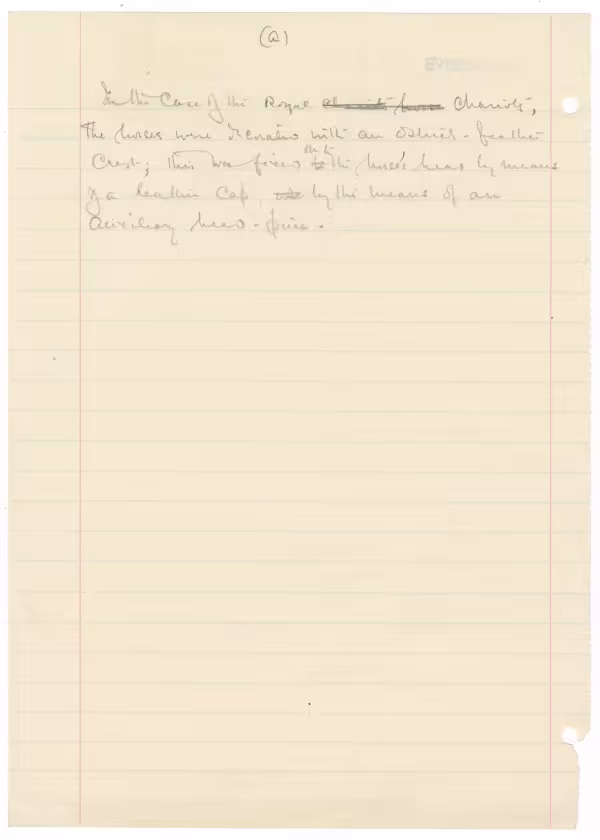 (a)
In the Case of the Royal Chariots,
the horses were decorated with an ostrich-feather
Crest; this was fixed on to the horse's head by means
of a leather Cap, by the means of an
auxiliary head-piece.